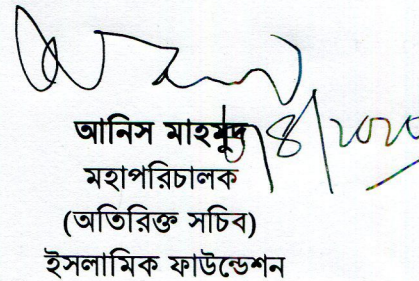 আনিস মাহমুদ
/8/2020
মহাপরিচালক
(অতিরিক্ত সচিব)
ইসলামিক ফাউন্ডেশন